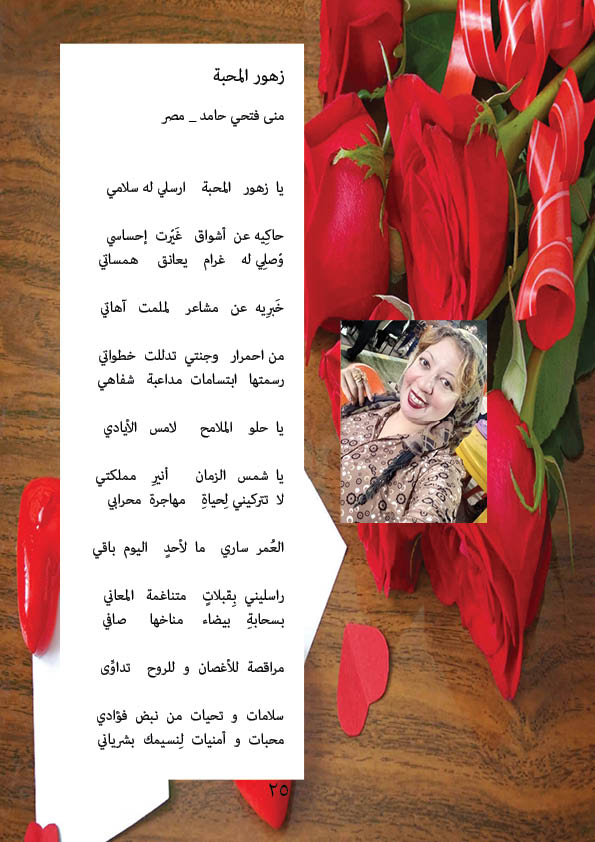 زهور المحبة
منى فتحي حامد _ مصر
يا زهور المحبة ارسلي له سلامي
حاكِيه عن أشواق غَيّرت إحساسي
وُصلِي له غرام يعانق همساتي
خَبرِيه عن مشاعر لملمت آهاتي
من احمرار وجنتي تدللت خطواتي
رسمتها ابتسامات مداعبة شفاهي
يا حلو الملامح لامس الأيادي
يا شمس الزمان أنيرِ مملكتي
لا تتركيني لِحياةِ مهاجرة محرابي
العُمر ساري ما لأحدٍ اليوم باقي
راسليني بِقبلاتٍ متناغمة المعاني
بسحابةِ بيضاء مناخها صافي
مراقصة للأغصان و للروح تداوِّى
سلامات و تحيات من نبض فؤادي
محبات و أمنيات لِنسيمك بشرياني
٢٥